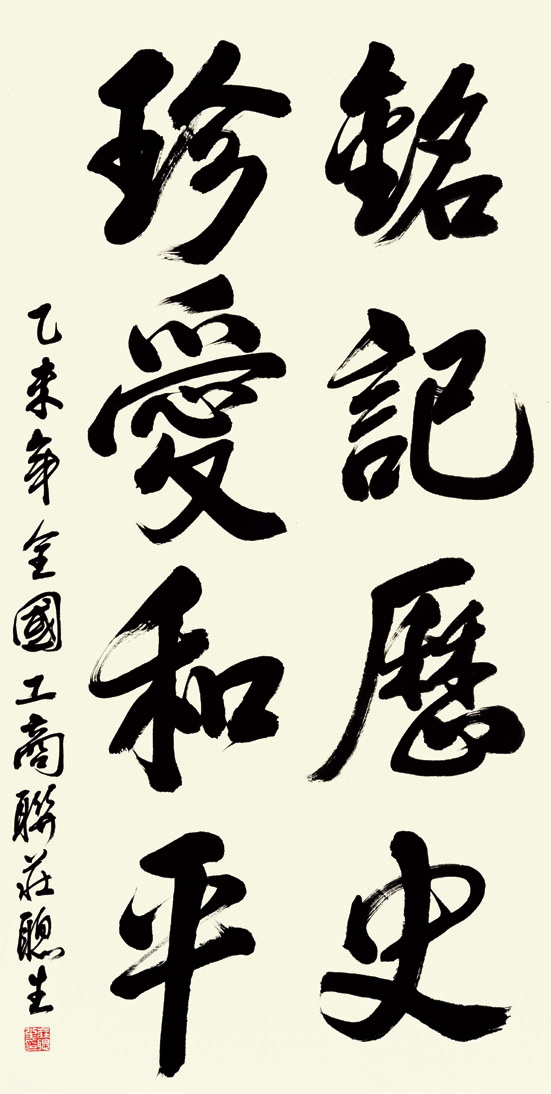 銘記歷史
珍愛和平
乙未年全國工商聯莊聰生